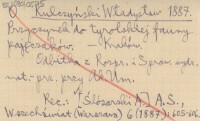 Kulczyński Władysław 1887.
Przyczynek do tyrolskiej fauny
pajęczaków. — Kraków.
Odbitka z Rozpr. i Spraw. wydz.
mat.-prz. przy Ak. Um.
Rec.: [Ślósarski A.] A.S.,
Wszechświat (Warszawa) 6 (1887): 605-606.